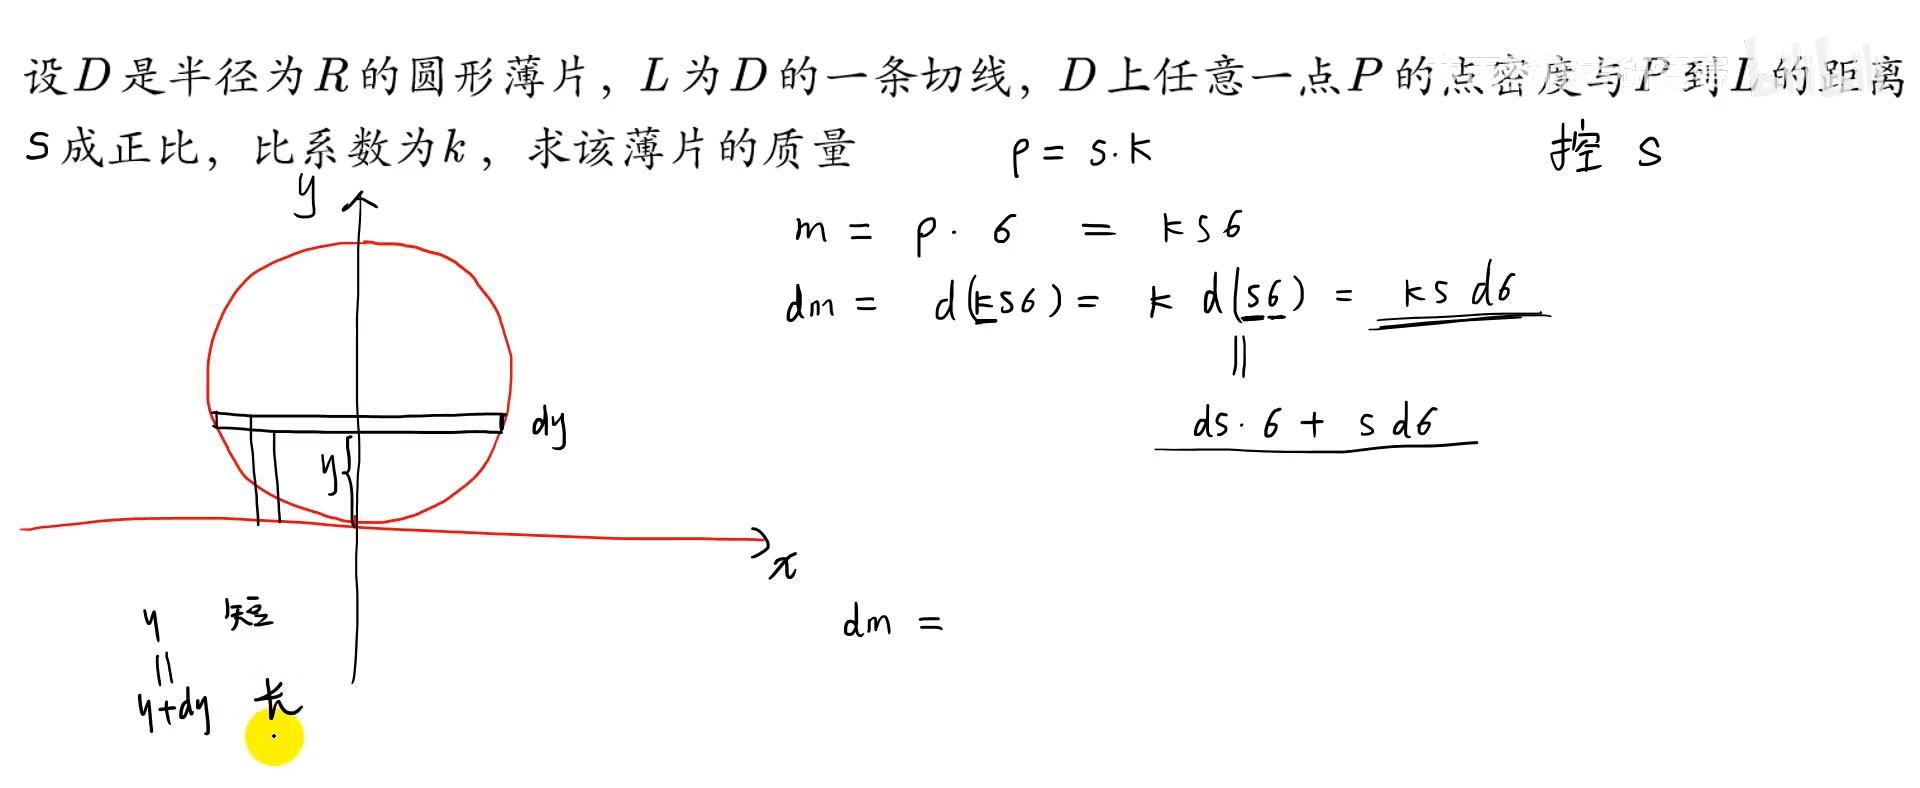 设D是半径为R的圆形薄片，L为D的一条切线，D上任意一点P的点密度与P到L的距离
S成正比，比系数为k，求该薄片的质量
ρ = s·k
控 s
y
m = ρ · σ = k s σ
dm = d(ksσ) = k d(sσ) = ks dσ
||
ds·σ + s dσ
dy
y{
x
dm =
y 短
||
y+dy 长
bilibili